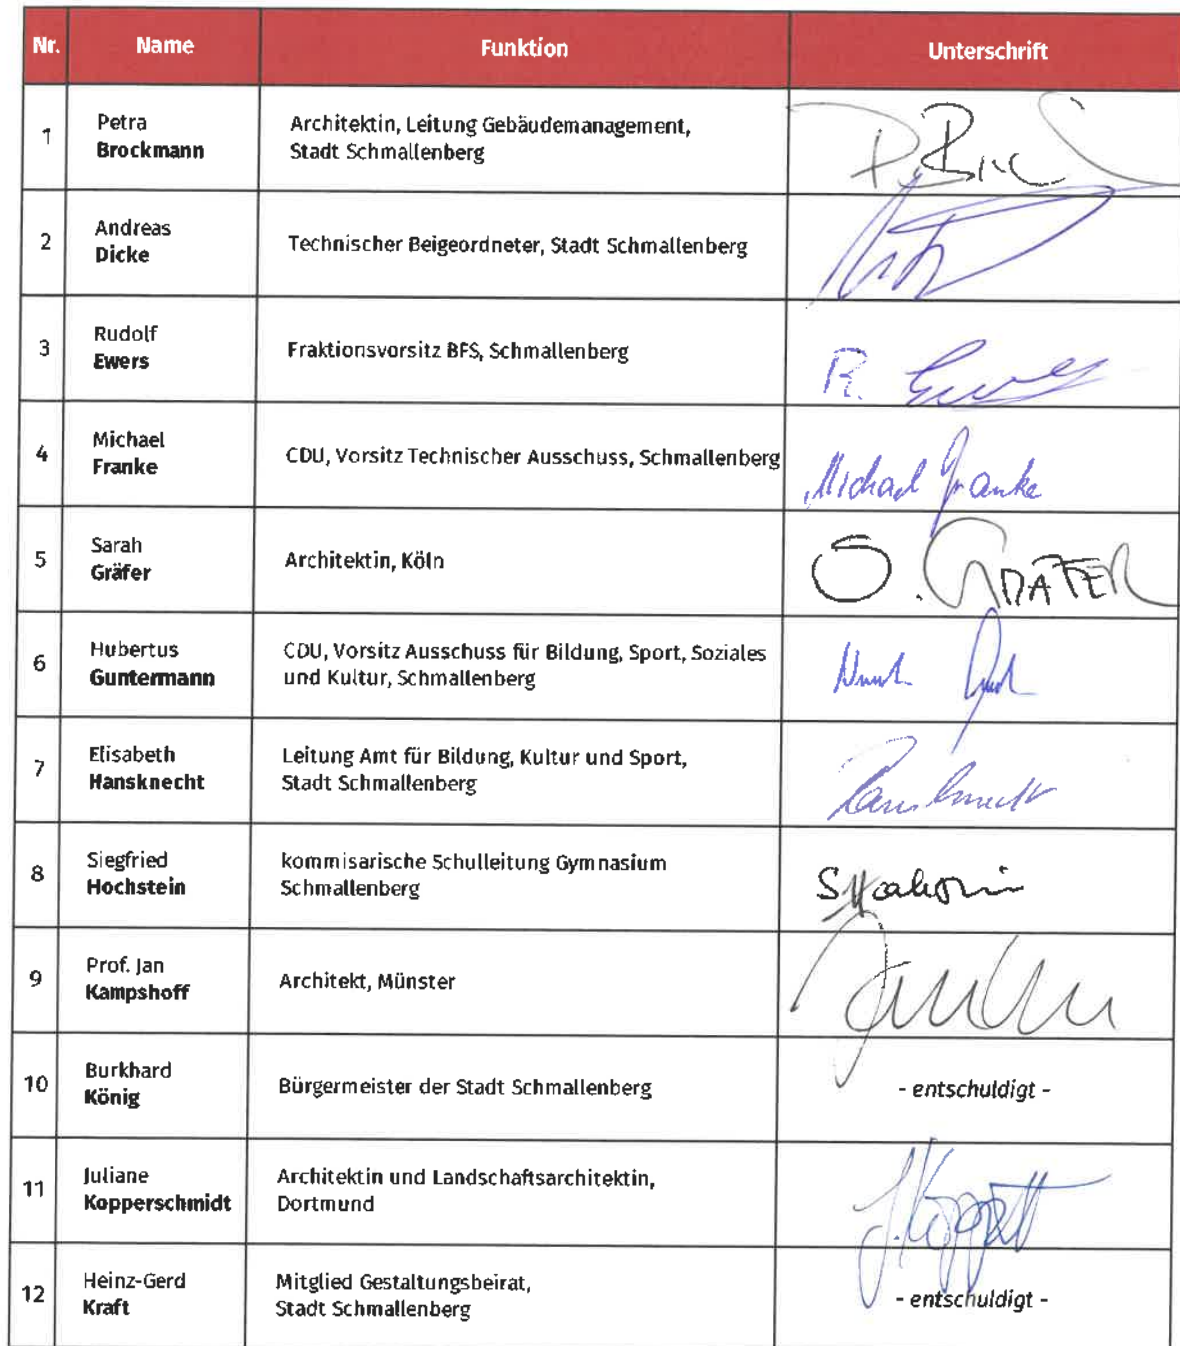 Nr. Name Funktion Unterschrift
1 Petra Brockmann Architektin, Leitung Gebäudemanagement,
Stadt Schmallenberg
2 Andreas Dicke Technischer Beigeordneter, Stadt Schmallenberg
3 Rudolf Ewers Fraktionsvorsitz BFS, Schmallenberg R. Ewers
4 Michael Franke CDU, Vorsitz Technischer Ausschuss, Schmallenberg Michael Franke
5 Sarah Gräfer Architektin, Köln S. GRÄFER
6 Hubertus Guntermann CDU, Vorsitz Ausschuss für Bildung, Sport, Soziales
und Kultur, Schmallenberg
7 Elisabeth Hansknecht Leitung Amt für Bildung, Kultur und Sport,
Stadt Schmallenberg
8 Siegfried Hochstein kommisarische Schulleitung Gymnasium
Schmallenberg
9 Prof. Jan Kampshoff Architekt, Münster
10 Burkhard König Bürgermeister der Stadt Schmallenberg - entschuldigt -
11 Juliane Kopperschmidt Architektin und Landschaftsarchitektin,
Dortmund
12 Heinz-Gerd Kraft Mitglied Gestaltungsbeirat,
Stadt Schmallenberg - entschuldigt -